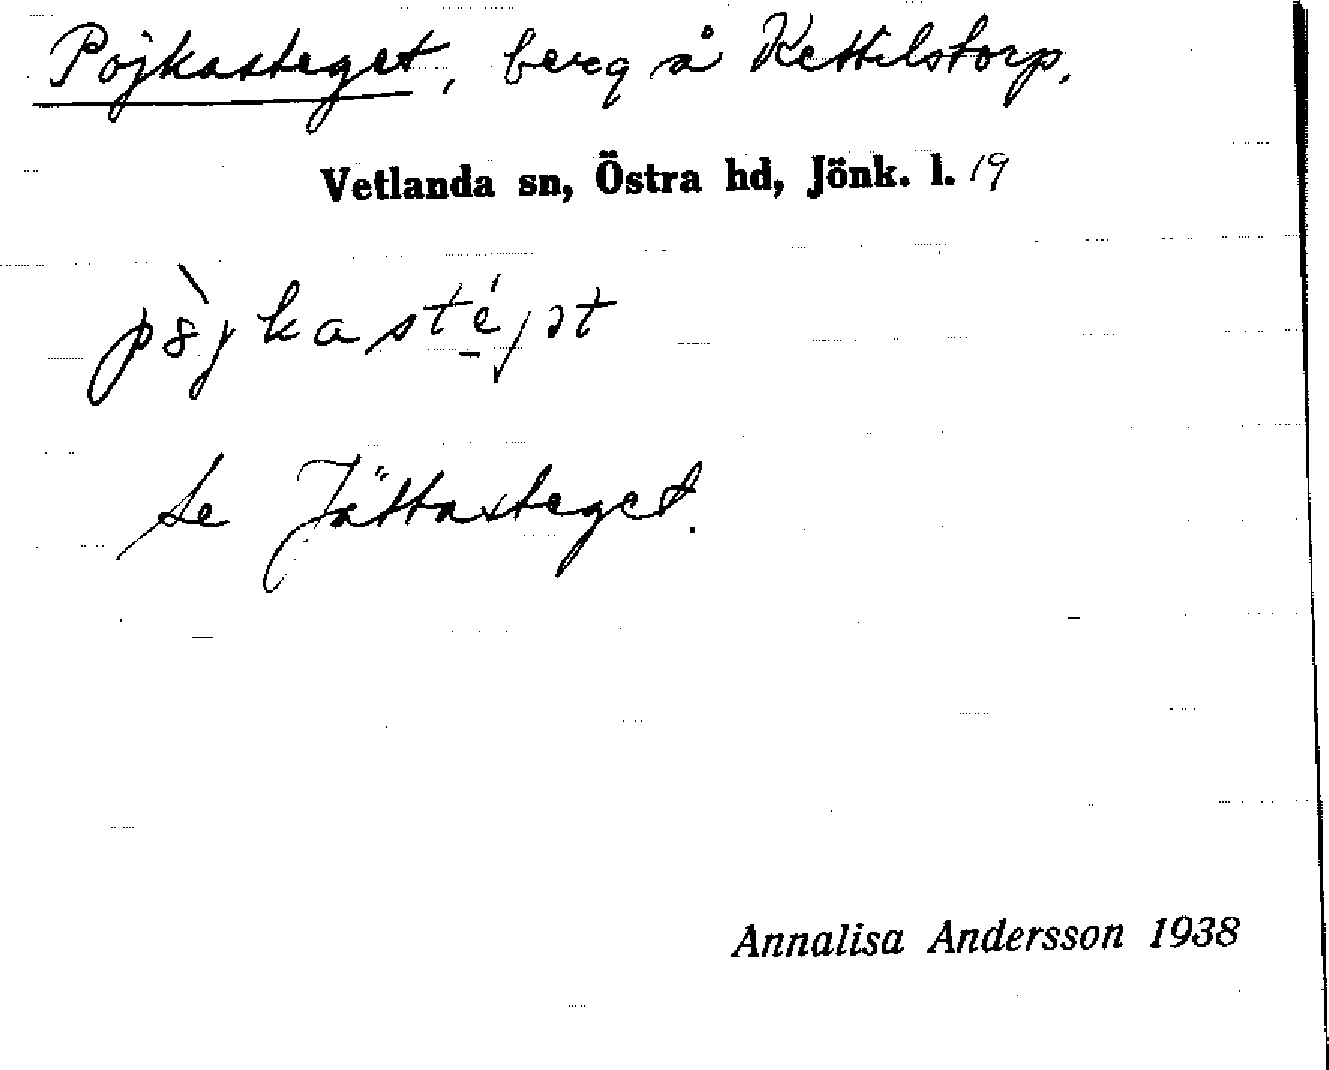 Pojkasteget, berg å Kettilstorp.
Vetlanda sn, Östra hd, Jönk. l. 19
se Jättasteget.
Annalisa Andersson 1938